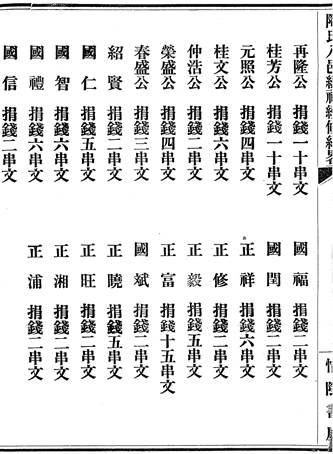 再隆公 捐錢一十串文 國福 捐錢二串文
桂芳公 捐錢一十串文 國閏 捐錢二串文
元照公 捐錢四串文 正祥 捐錢六串文
桂文公 捐錢六串文 正修 捐錢二串文
仲浩公 捐錢二串文 正毅 捐錢五串文
榮盛公 捐錢四串文 正富 捐錢十五串文
春盛公 捐錢三串文 國斌 捐錢二串文
紹賢 捐錢二串文 正曉 捐錢五串文
國仁 捐錢五串文 正旺 捐錢二串文
國智 捐錢六串文 正湘 捐錢二串文
國禮 捐錢六串文 正浦 捐錢二串文
國信 捐錢二串文